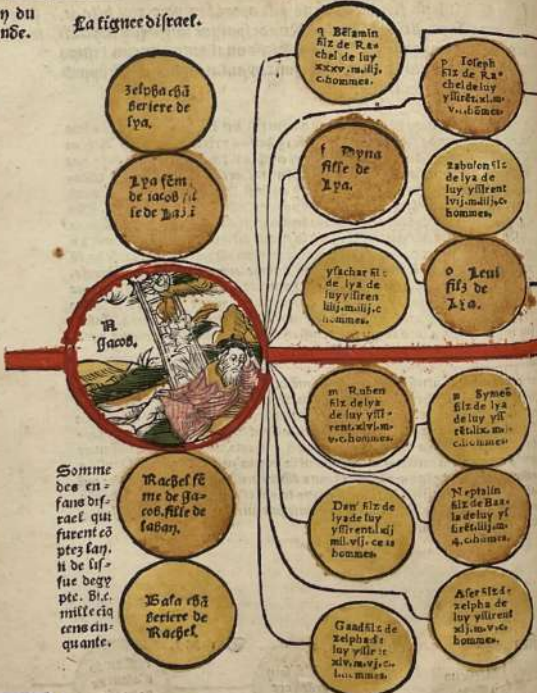 y du
nde.
La lignee disrael.
zelpha chã
beriere de
lya.
Lya fẽm
de iacob fil
le de
N
Jacob.
Rachel fẽ
me de Ja-
cob, fille de
laban.
Bala chã
beriere de
Rachel.
Somme
des en-
fans dis-
rael qui
furent cõ
ptez lan.
ii de lis-
sue degy
pte. vi.c.
mille ciq
cens cin-
quante.
q Bẽiamin
filz de Ra-
chel de luy
xxxv.m.iiij.
c.hommes.
p Ioseph
filz de Ra-
chel de luy
yssirẽt.xl.m.
v.c.hõmes.
f Dyna
fille de
Lya.
zabulon filz
de lya de
luy yssirent
lvij.m.iiij.c.
hommes.
ysachar filz
de lya de
luy yssiren
liiij.m.iiij.c
hommes.
o Leui
filz de
Lya.
m Ruben
filz de lya
de luy yssi-
rent.xlvi.m.
v.c.hommes.
n Symeõ
filz de lya
de luy yssi
rẽt.lix.m.
c.hommes.
Dan filz de
lya de luy
yssirent.lxij
mil.vij.cens
hommes.
Neptalin
filz de Ba-
la de luy ys
sirẽt.liij.m.
4.c.hõmes.
Gaad filz de
zelpha de
luy yssirẽt
xlv.m.vj.c.
hommes.
Aser filz de
zelpha de
luy yssirent
xlj.m.v.c.
hommes.